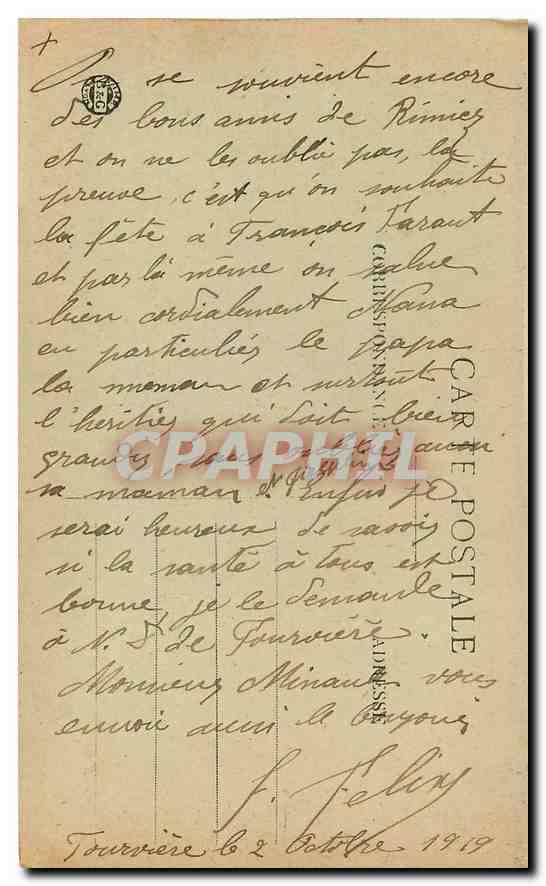 On se souvient encore
des bons amis de Rimiez
et on ne les oublie pas, la
preuve, c'est qu'on souhaite
la fête à François Faraut
et par là même on salue
bien cordialement Nana
en particuliés le papa
la meman et surtout
l'héritiés qui doit bien
grandis sans oublies aussi
sa maman et Enfin je
serai heureux de savois
si la santé à tous est
bonne, je le demande
à N. D de Fourvière.
Monsieur Minaus vous
envoi aussi le
f. Félix
Fourvière le 2 Octobre 1919
CARTE POSTALE
CORRESPONDANCE
ADRESSE
B & G
CPAPHIL